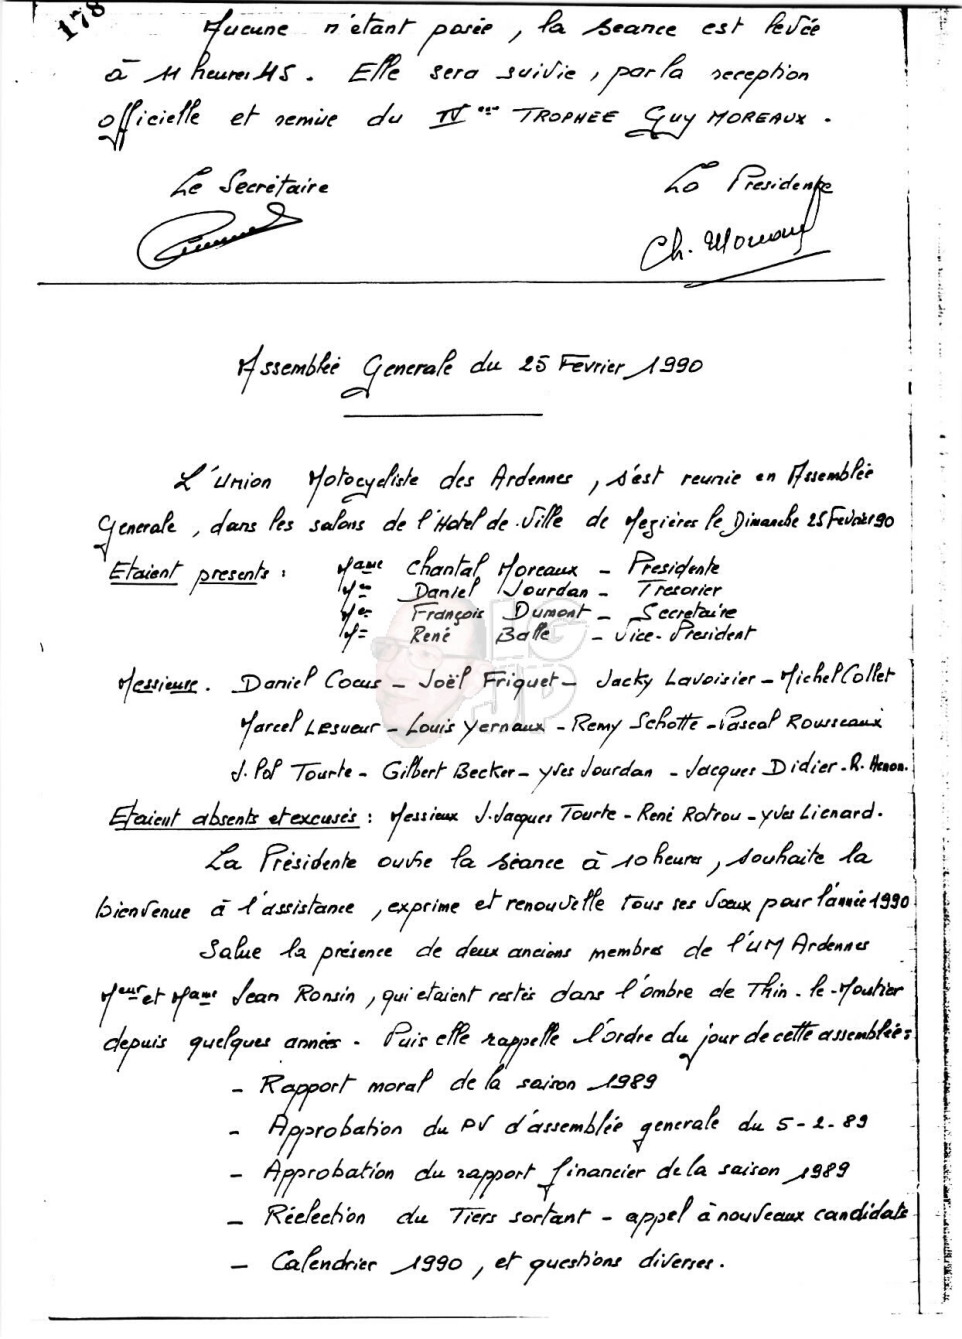 178
Aucune n'étant posée, la seance est levée
à 11 heures 45. Elle sera suivie, par la reception
officielle et remise du IVeme TROPHEE Guy MOREAUX.
Le Secrétaire La Presidente
Ch. Moreaux
Assemblée Generale du 25 Fevrier 1990
L'Union Motocycliste des Ardennes, s'est reunie en Assemblée
Generale, dans les salons de l'Hotel de Ville de Mezières le Dimanche 25 Fevrier 90
Etaient presents : Mame Chantal Moreaux - Presidente
Mr Daniel Jourdan - Tresorier
Mr François Dumont - Secretaire
Mr René Balle - Vice-President
IG
JP
Messieurs. Daniel Cocus - Joël Friquet - Jacky Lavoisier - Michel Collet
Marcel Lesueur - Louis Yernaux - Remy Schotte - Pascal Rousseaux
J. Pol Tourte - Gilbert Becker - Yves Jourdan - Jacques Didier - R. Henon.
Etaient absents et excusés : Messieux J. Jacques Tourte - René Rotrou - Yves Lienard.
La Présidente ouvre la séance à 10 heures, souhaite la
bienvenue à l'assistance, exprime et renouvelle tous ses voeux pour l'année 1990
Salue la présence de deux anciens membres de l'UM Ardennes
Meur et Mame Jean Ronsin, qui etaient restés dans l'ombre de Thin-le-Moutier
depuis quelques années. Puis elle rappelle l'ordre du jour de cette assemblée :
- Rapport moral de la saison 1989
- Approbation du PV d'assemblée generale du 5-2-89
- Approbation du rapport financier de la saison 1989
- Réelection du Tiers sortant - appel à nouveaux candidats
- Calendrier 1990, et questions diverses.